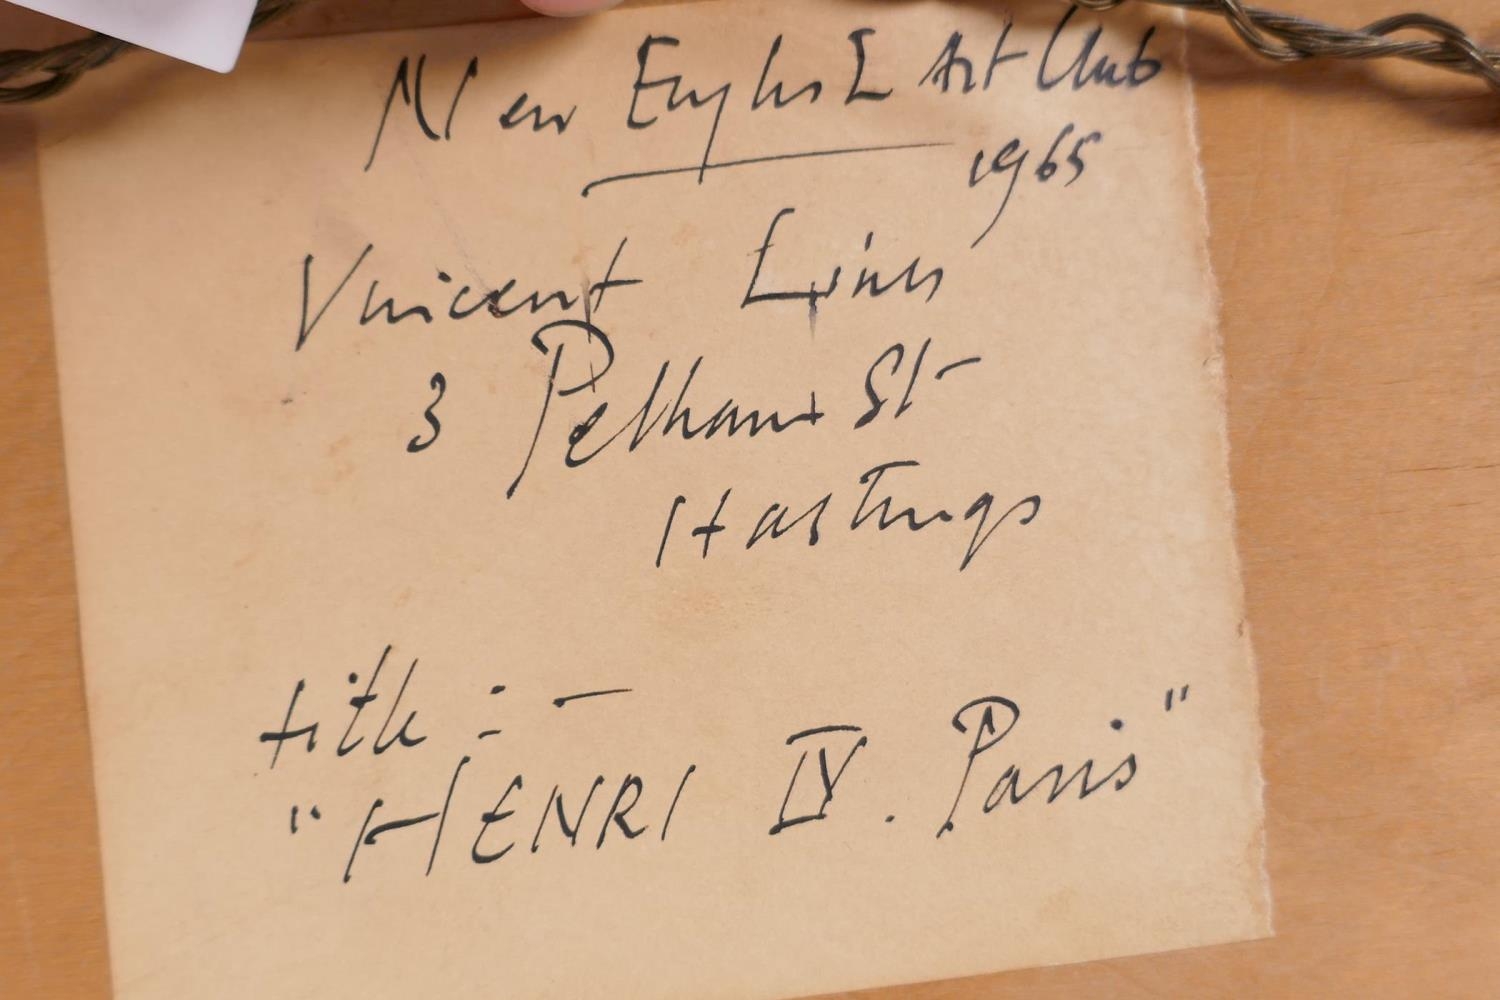 New English Art Club
1965
Vincent Lines
3 Pelham St
Hastings
title : —
"HENRI IV. Paris"